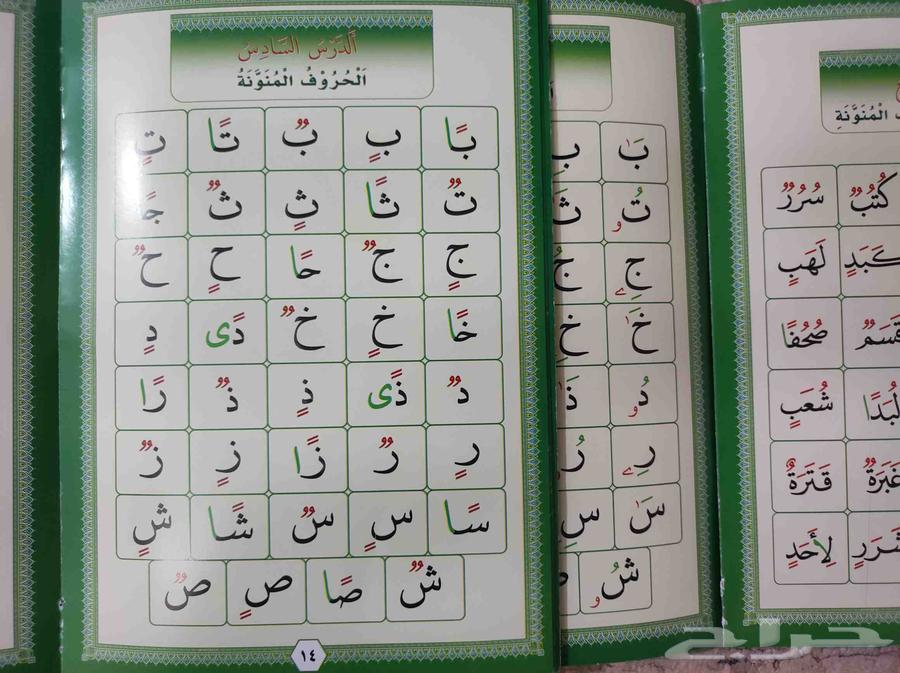 اَلدَّرْسُ السَّادِسُ
اَلْحُرُوْفُ الْمُنَوَّنَةُ
بًا بٍ بٌ تًا تٍ
تٌ ثًا ثٍ ثٌ جًا
جٍ جٌ حًا حٍ حٌ
خًا خٍ خٌ دًى دٍ
دٌ ذًى ذٍ ذٌ رًا
رٍ رٌ زًا زٍ زٌ
سًا سٍ سٌ شًا شٍ
شٌ صًا صٍ صٌ
١٤
بَٰ
تُو
جِے
خَٰ
دُو
رِے
سَٰ
شُو
الْمُنَوَّنَةِ
كُتُبٌ سُرُرٌ
كَبَدٍ لَهَبٍ
قَسَمٌ صُحُفًا
لُبَدًا شُعَبٍ
غَبَرَةٌ قَتَرَةٌ
شَرَرٍ لِأَحَدٍ
حراج